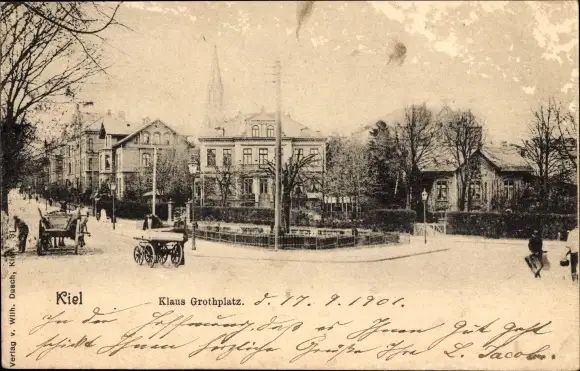 Kiel
Klaus Grothplatz.
d. 17. 9. 1901.
In der Hoffnung, daß es Ihnen gut geht
schickt Ihnen herzliche Grüße Ihre L. Jacob.
Verlag v. Wilh. Dusch, Kiel 91